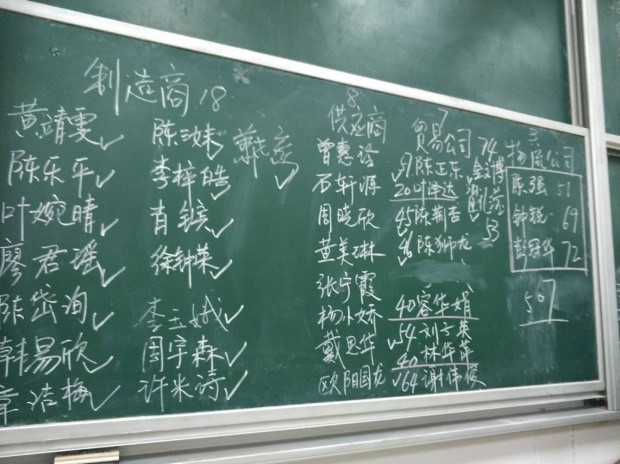 制造商 18
黄靖雯
陈乐平
叶婉晴
廖君瑶
陈岱洵
韩杨欣
章洁梅
李梓皓
肖镔
徐钟荣
李玉娥
周宇森
许米涛
8
供应商
曾惠
石轩源
周晓欣
黄美琳
张宁霞
杨小娇
戴思华
欧阳国龙
7
贸易公司
陈正东
20 叶泽达
45 陈莉吉
46 陈狮龙
40 容华娟
54 刘子英
40 林华革
64 谢伟俊
74
3
物流公司
陈强 51
钟锐 69
72
507